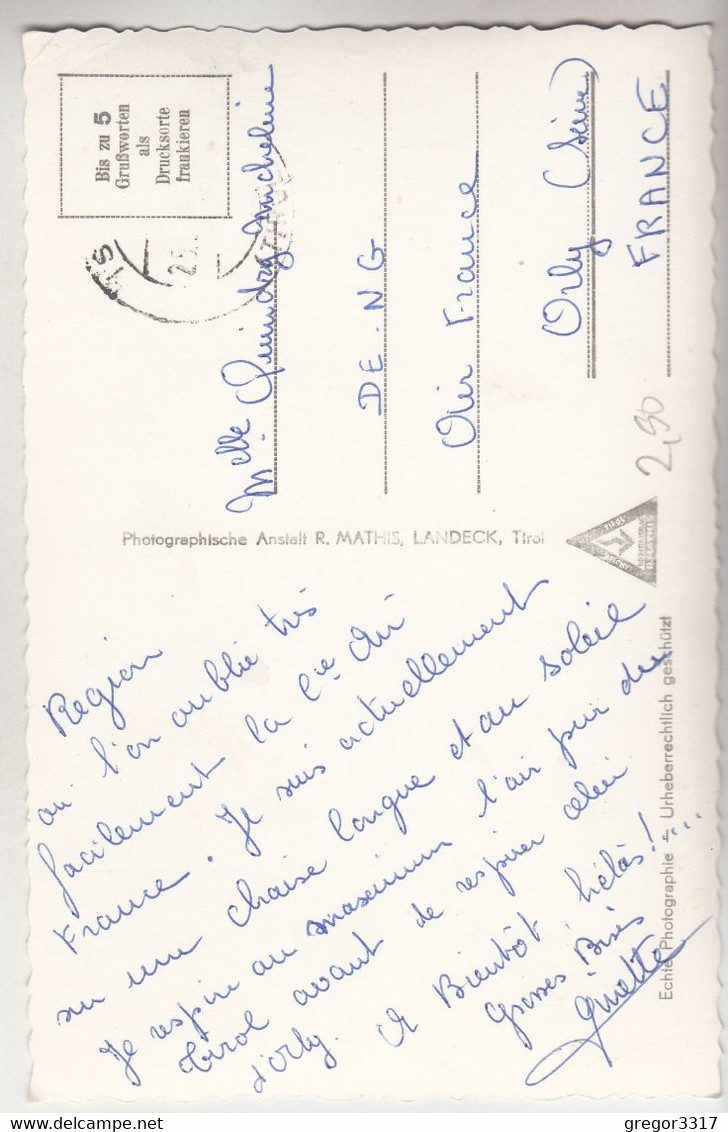 Region
où l'on oublie très
facilement la Cie Air
France. Je suis actuellement
sur une chaise longue et au soleil
Je respire au maximum l'air pur du
Tirol avant de respirer celui
d'Orly. A Bientôt hélas!...
Grosses Bises
Ginette
Photographische Anstalt R. MATHIS, LANDECK, Tirol
Echte Photographie – Urheberrechtlich geschützt
TIROL
Bis zu 5
Grußworten
als
Drucksorte
frankieren
Melle Micheline
DE.NG
Air France
Orly (Seine)
FRANCE
2,90
gregor3317